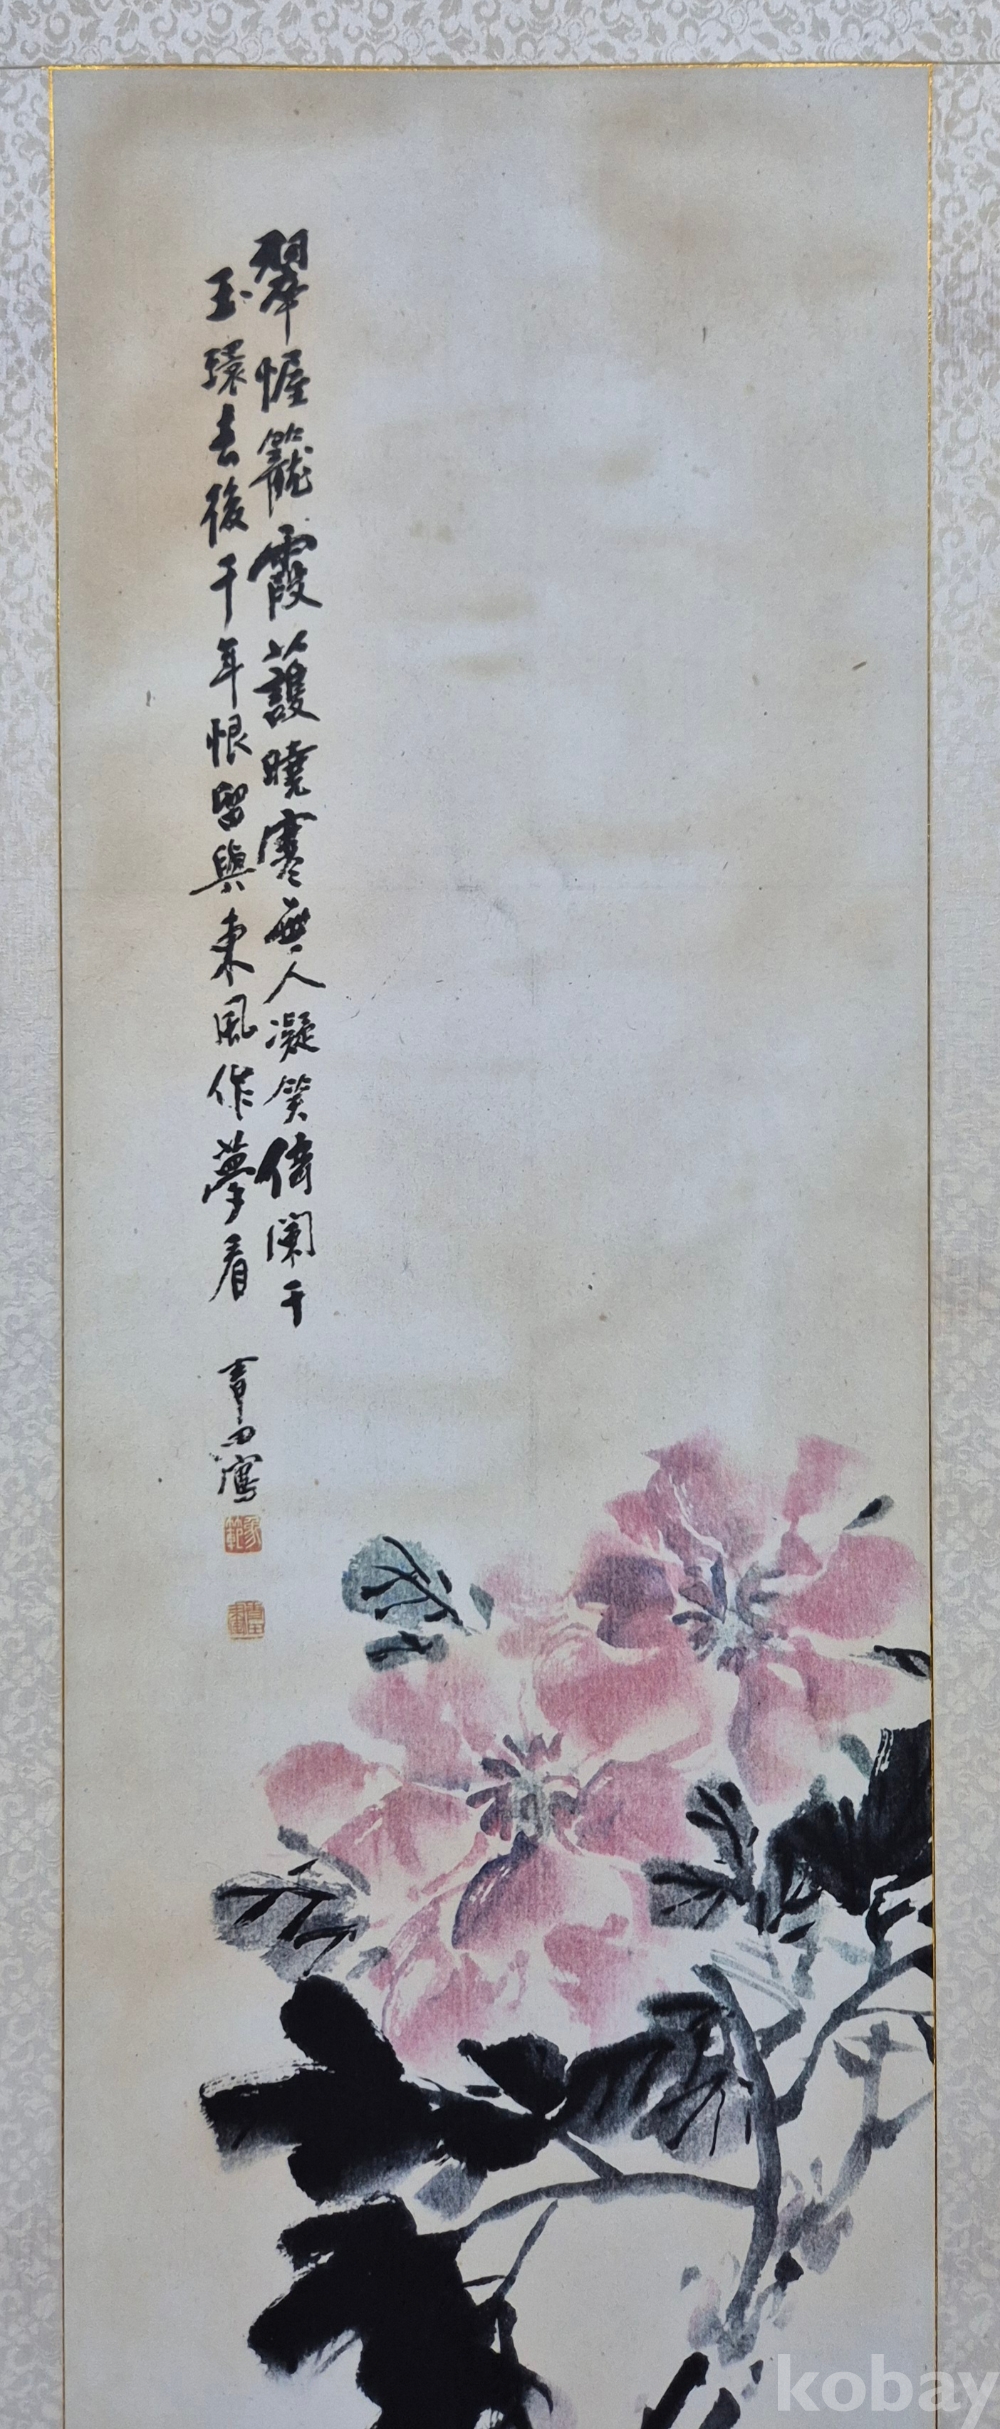 翠幄籠霞護曉寒無人凝笑倚闌干
玉環去後千年恨留與東風作夢看
香田寫
kobay